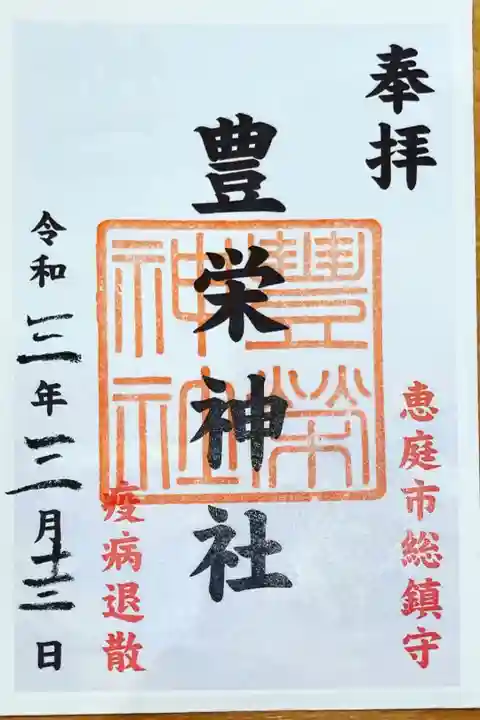 奉拝
恵庭市総鎮守
豊栄神社
豐榮
神社
疫病退散
令和三年三月十三日